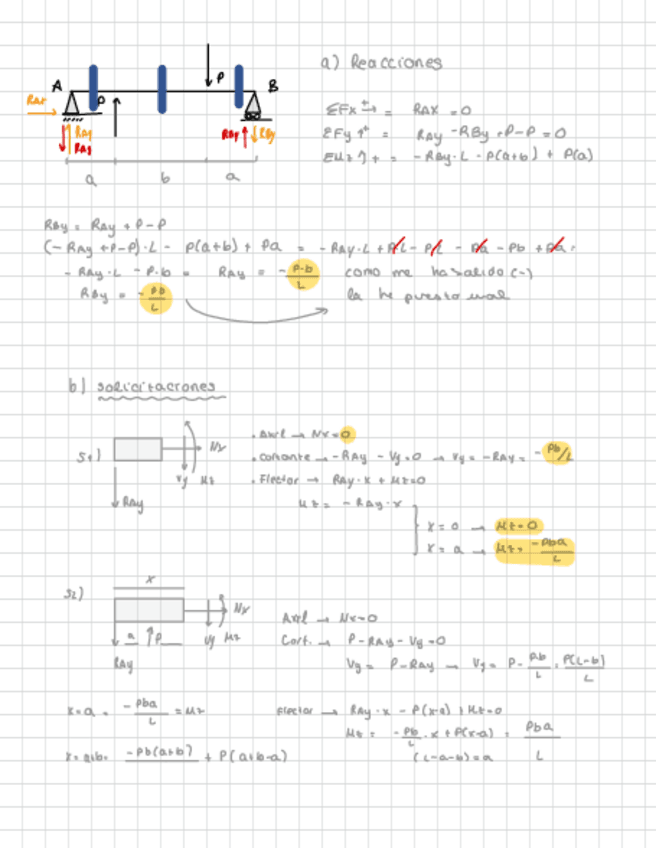 a) Reacciones
A
P
B
RAx
P
RAy
RAy
RBy
RBy
a
b
a
ΣFx →+ = RAx = 0
ΣFy ↑+ = RAy - RBy + P - P = 0
ΣMz ↰+ = - RBy·L - P(a+b) + P(a)
RBy = RAy + P - P
(- RAy + P - P)·L - P(a+b) + Pa = - RAy·L + PL - PL - Pa - Pb + Pa =
- RAy·L - P·b = RAy = - P·b/L como me ha salido (-)
RBy = - Pb/L la he puesto mal
b) solicitaciones
S1)
Nx
Vy
Mz
RAy
· Axil → Nx=0
· Cortante → -RAy - Vy = 0 → Vy = -RAy = - Pb/L
· Flector → RAy·x + Mz=0
Mz = - RAy·x
x = 0 → Mz=0
x = a → Mz = -Pba/L
S2)
x
Nx
a
P
Vy
Mz
RAy
Axil → Nx=0
Cort. → P-RAy-Vy=0
Vy = P-RAy → Vy = P - Pb/L = P(L-b)/L
x=a = -Pba/L = Mz
Flector → RAy·x - P(x-a) + Mz=0
Mz = -Pb/L·x + P(x-a) = Pba/L
x=a+b= -Pb(a+b)/ + P(a+b-a)
(L-a-b)=a